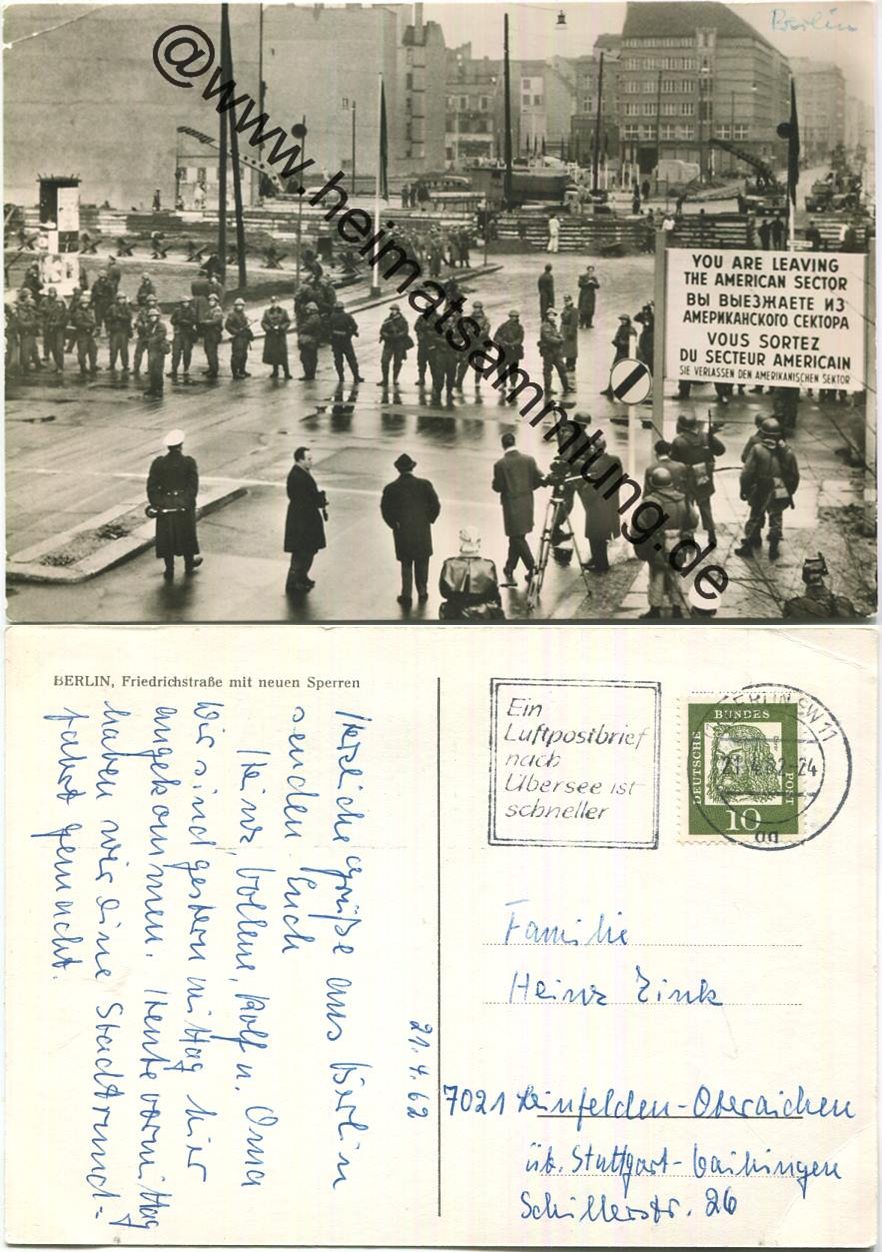 Berlin
@www.heimatsammlung.de
YOU ARE LEAVING
THE AMERICAN SECTOR
ВЫ ВЫЕЗЖАЕТЕ ИЗ
АМЕРИКАНСКОГО СЕКТОРА
VOUS SORTEZ
DU SECTEUR AMÉRICAIN
SIE VERLASSEN DEN AMERIKANISCHEN SEKTOR
BERLIN, Friedrichstraße mit neuen Sperren
21.4.62
Herzliche Grüße aus Berlin
senden Euch
Heinz, Rolf u. Oma
Wir sind gestern mittag hier
angekommen. Heute vormittag
haben wir eine Stadtrund-
fahrt gemacht.
Ein
Luftpostbrief
nach
Übersee ist
schneller
BERLIN SW 11
21.4.62-24
DEUTSCHE
BUNDES
POST
10
Familie
Heinz Zink
7021 Leinfelden-Oberaichen
üb. Stuttgart-Vaihingen
Schillerstr. 26